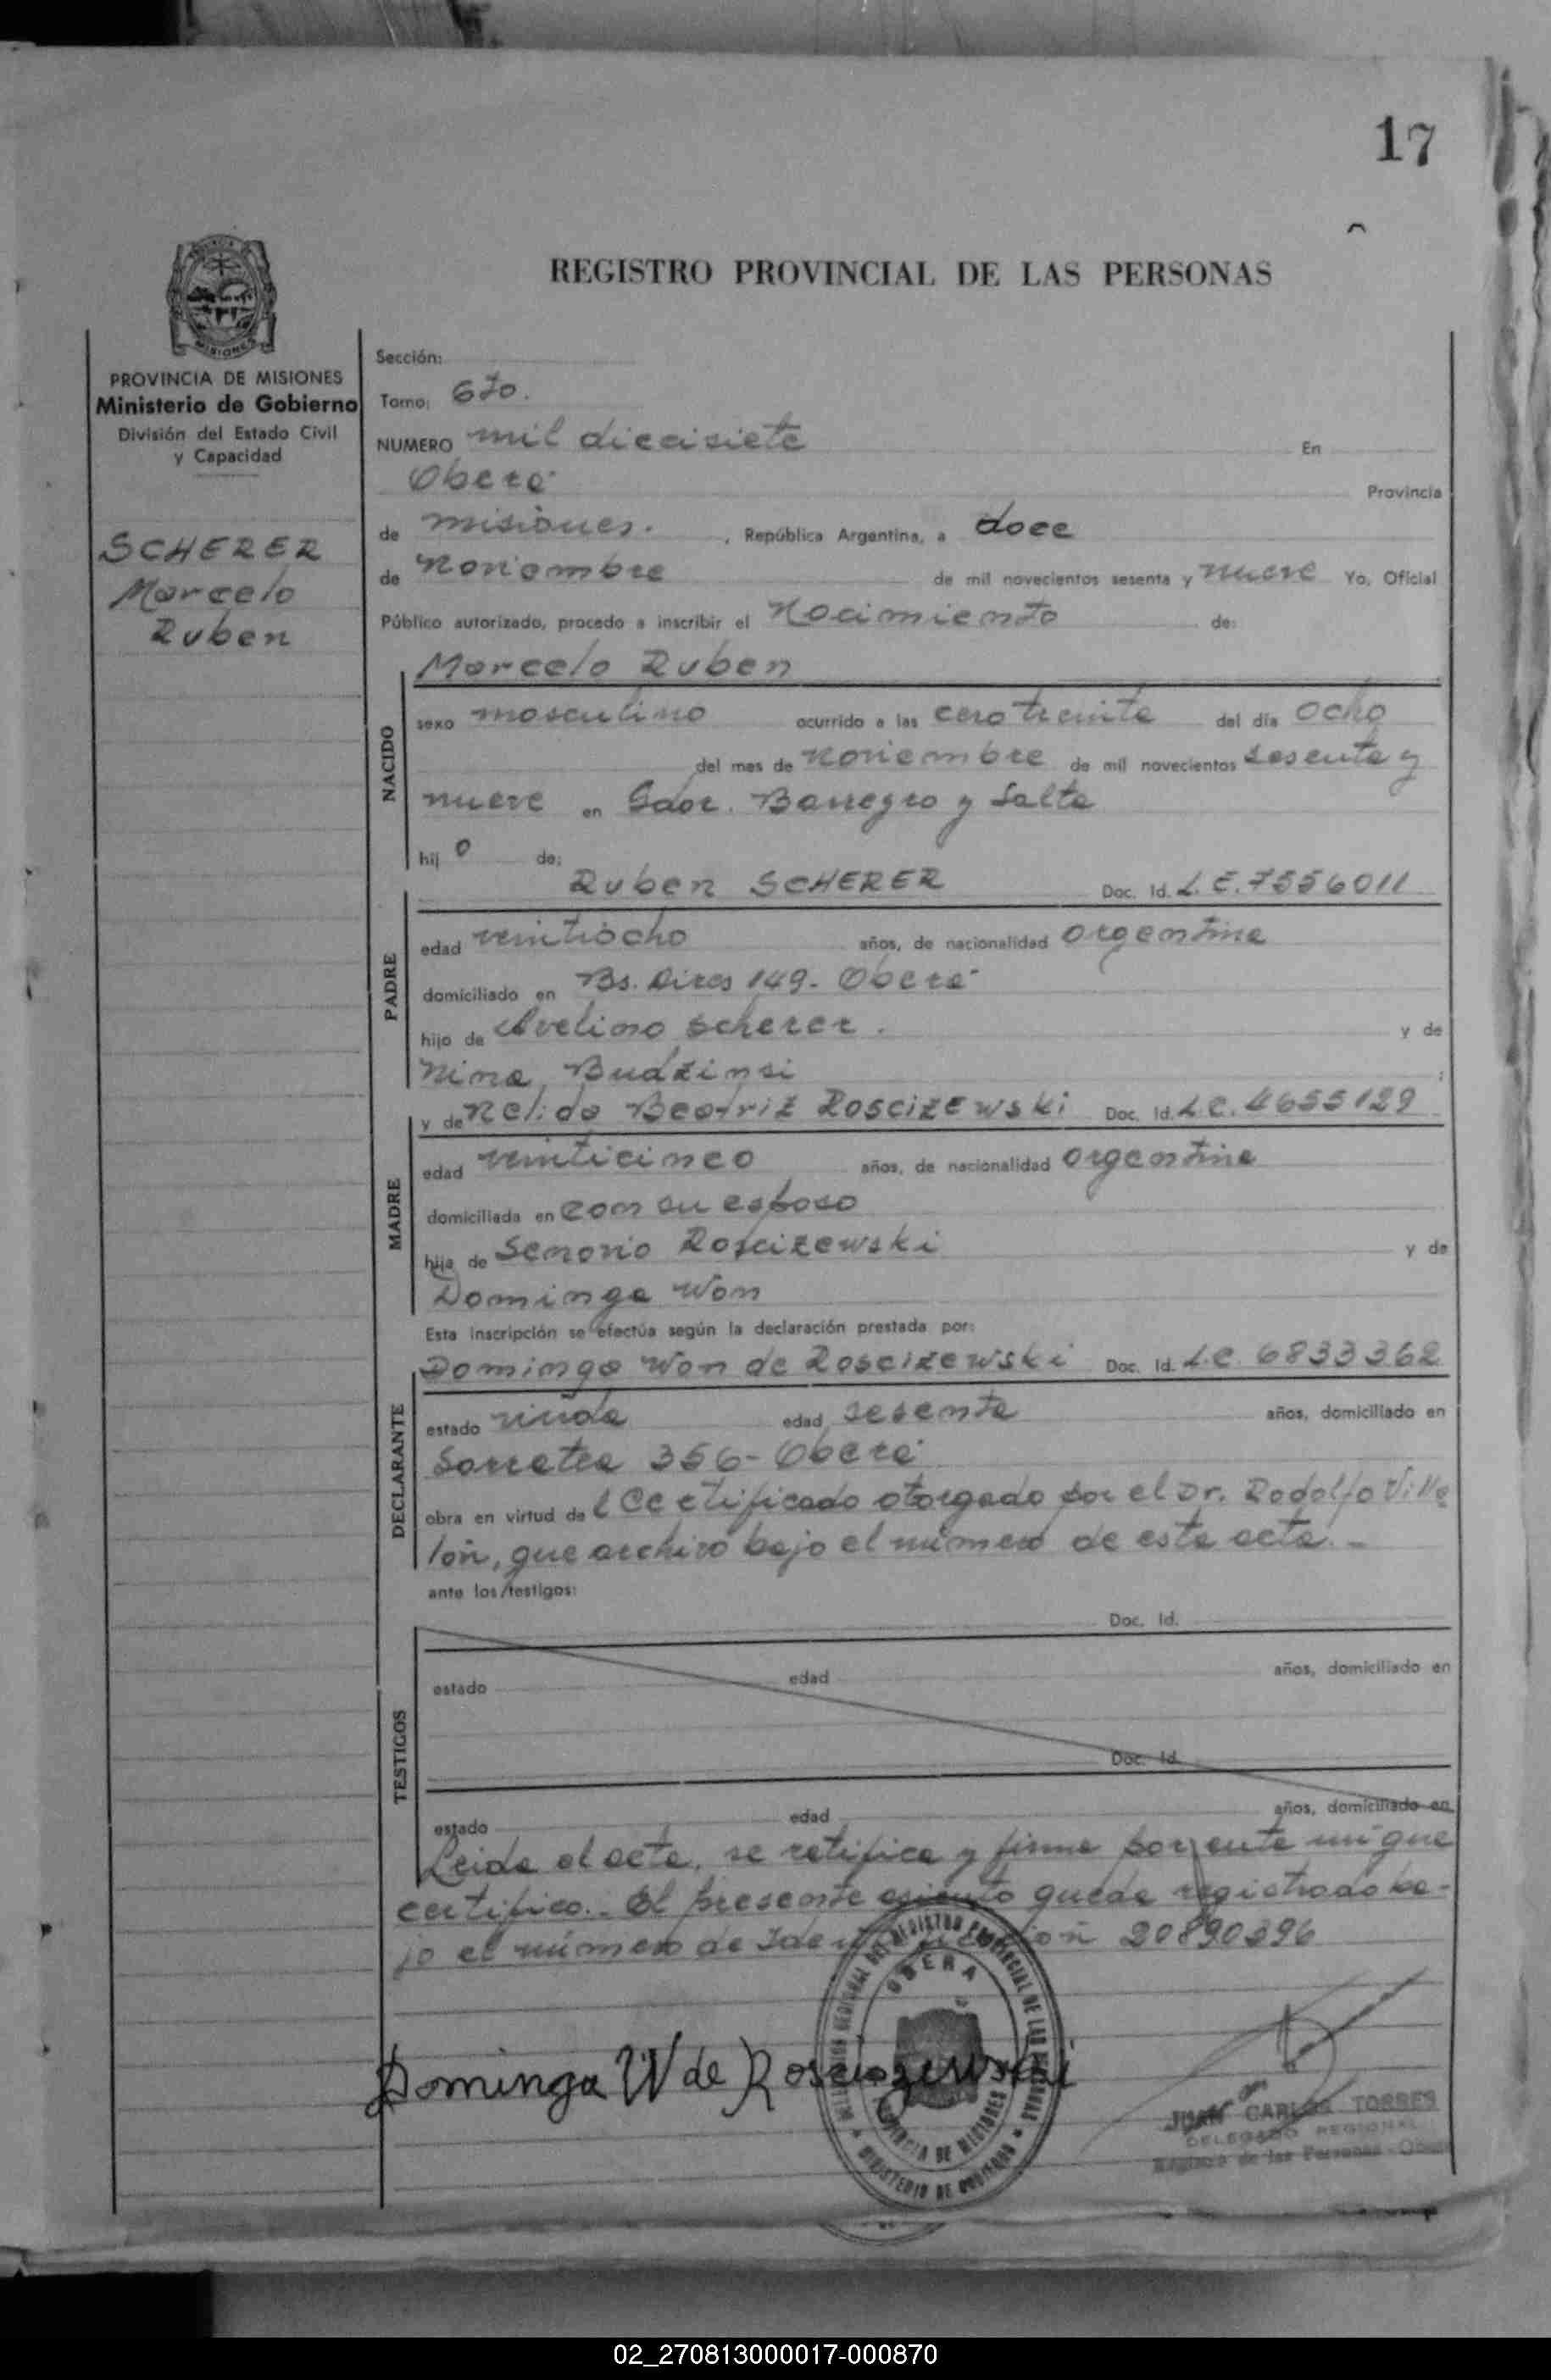 17
REGISTRO PROVINCIAL DE LAS PERSONAS
MISIONES
PROVINCIA DE MISIONES
Ministerio de Gobierno
División del Estado Civil
y Capacidad
SCHERER
Marcelo
Ruben
Sección:
Tomo: 6to.
NUMERO mil diecisiete En
Oberá Provincia
de misiones. , República Argentina, a doce
de Noviembre de mil novecientos sesenta y nueve Yo, Oficial
Público autorizado, procedo a inscribir el Nacimiento de:
Marcelo Ruben
NACIDO
sexo masculino ocurrido a las cero treinta del día ocho
del mes de Noviembre de mil novecientos sesenta y
nueve en Gdor. Barreyro y Salta
hij o de:
Ruben SCHERER Doc. Id. L.E. 7556011
PADRE
edad veintiocho años, de nacionalidad argentina
domiciliado en Bs. Aires 149- Oberá
hijo de Avelino Scherer. y de
Nina Budzinsi
y de Nelida Beatriz Roscizewski Doc. Id. L.C. 4655129
MADRE
edad veinticinco años, de nacionalidad argentina
domiciliada en con su esposo
hija de Roscizewski y de
Dominga Won
Esta inscripción se efectúa según la declaración prestada por:
Dominga Won de Roscizewski Doc. Id. L.C. 6833362
DECLARANTE
estado viuda edad sesenta años, domiciliado en
Sarratea 356- Oberá
obra en virtud de l Certificado otorgado por el Dr. Rodolfo Villa
lón, que archivo bajo el número de esta acta.-
ante los testigos:
Doc. Id.
TESTIGOS
estado edad años, domiciliado en
Doc. Id.
estado edad años, domiciliado en
Leida el acta, se ratifica y firma por ante mi que
certifico.- El presente asiento queda registrado ba-
jo el número de Identificación 20890396
OBERA
PROVINCIA DE MISIONES
MINISTERIO DE GOBIERNO
Dominga W de Rosciszewski
JUAN CARLOS TORRES
DELEGADO REGIONAL
Registro de las Personas - Oberá
02_270813000017-000870